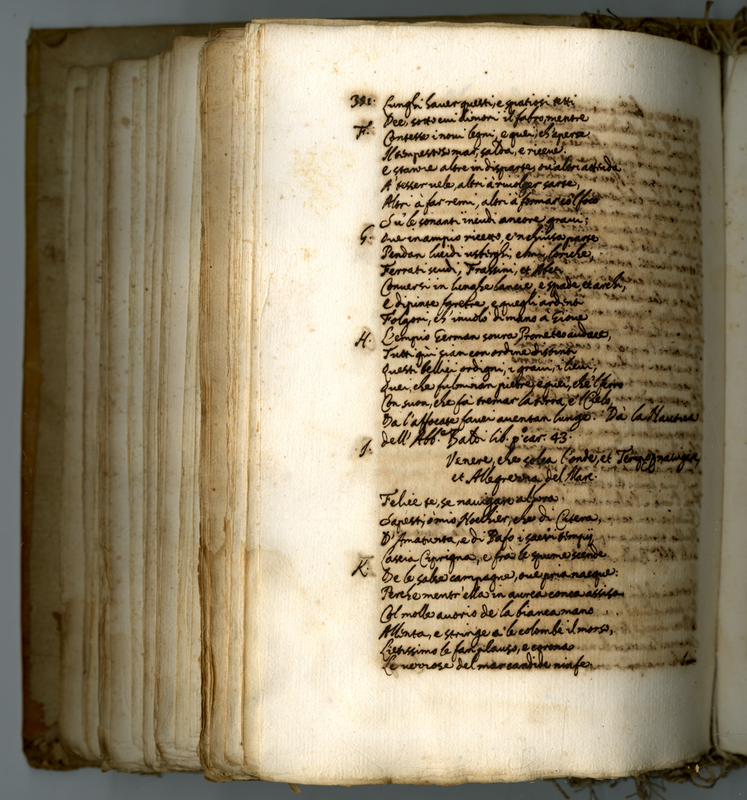 392: Lunghi haver questi, e spatiosi tetti
Dee, sotto cui dimori il fabro, mentre
F. Contesse i novi legni, e quei, ch'aperse
Il tempestoso mar, salda, e riceve.
e stanvi altre in disparte, ov'altri attenda
A' tesser vele, altri à rivolger sarte,
Altri à far remi, altri à formar co'l foco
Sù le sonanti incudi ancore gravi;
G. Ove in ampio ricetto, e'n chiusa parte
Pendan lucidi usberghi, elmi, loriche,
Ferrati scudi, Frassini, et Abeti
Conversi in lunghe lancie, e spade, et archi,
e dipinte faretre, e quegli ardenti
Folgori, ch'involò di mano à Giove
H. L'empio German soura Prometeo audace,
Tutti quì sian con ordine distinti
Questi bellici ordigni, i gravi, i lievi,
Quei, che fulminan pietre, e quei, che'l ferro
Con suon, che fà tremar la terra, e'l Cielo,
Da l'affocate fauci aventan lunge. Da la Nautica
dell'Abb.e Baldi lib. p.o car. 43.
I. Venere, che solca l'onde, et Tempo
et Allegrezza del Mare.
Felice te, se navigare allhora
Sapesti, ò mio Nocchier, che di Citera,
D'Amatunta, e di Pafo i sacri tempij
Lascia Ciprigna, e fra le spume scende
K. De le salse campagne, ove pria nacque:
Perche mentr'ella in aurea conca assisa
Col molle avorio de la bianca mano
Allenta, e stringe a le colombe il morso,
Lietissimo le fan plauso, e corona
Le vezzose del mar candide ninfe,